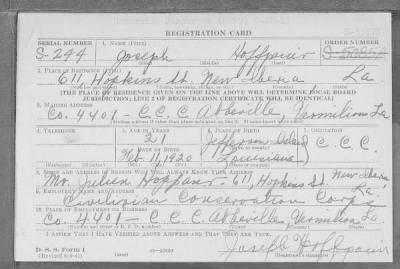 REGISTRATION CARD
SERIAL NUMBER 1. NAME (Print) ORDER NUMBER
S-244 Joseph Hoffpauir
(First) (Middle) (Last)
2. PLACE OF RESIDENCE (Print)
611 Hopkins St. New Iberia La
[THE PLACE OF RESIDENCE GIVEN ON THE LINE ABOVE WILL DETERMINE LOCAL BOARD
JURISDICTION; LINE 2 OF REGISTRATION CERTIFICATE WILL BE IDENTICAL]
3. MAILING ADDRESS
Co. 4401 - C.C.C. Abbeville Vermilion La.
4. TELEPHONE 5. AGE IN YEARS 6. PLACE OF BIRTH 7. OCCUPATION
21 Jefferson C.C.C.
DATE OF BIRTH
Feb 1920 Louisiana
8. NAME AND ADDRESS OF PERSON WHO WILL ALWAYS KNOW YOUR ADDRESS
Mr. 611 Hopkins St. New Iberia La.
9. EMPLOYER'S NAME AND ADDRESS
Civilian Conservation Corps
10. PLACE OF EMPLOYMENT OR BUSINESS
Co. 4401 - C.C.C. Abbeville Vermilion La.
I AFFIRM THAT I HAVE VERIFIED ABOVE ANSWERS AND THAT THEY ARE TRUE.
D. S. S. Form 1
Joseph Hoffpauir